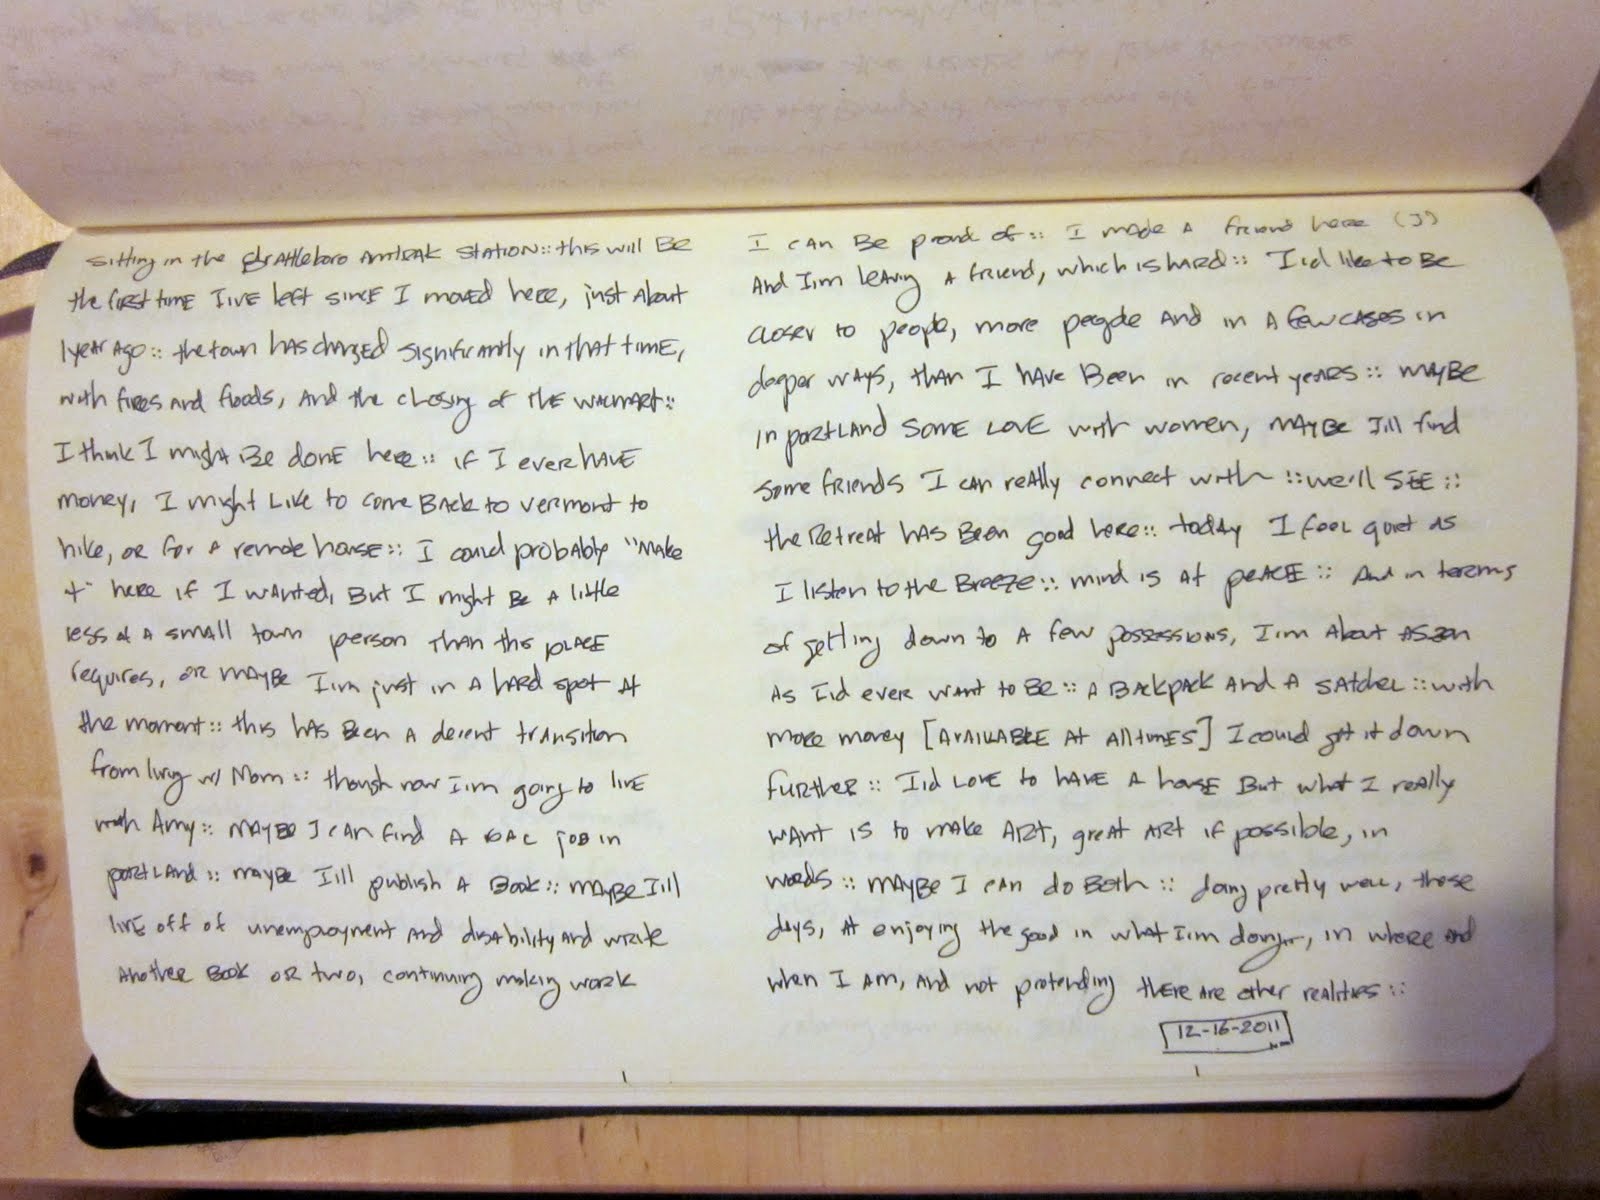 sitting in the Brattleboro Amtrak station:: this will Be
the first time I've left since I moved here, just about
1 year ago:: the town has changed significantly in that time,
with fires and floods, and the closing of the Walmart::
I think I might Be done here:: if I ever have
money, I might like to come Back to Vermont to
hike, or for a remote house:: I could probably "make
it" here if I wanted, But I might Be a little
less of a small town person than this place
requires, or maybe I'm just in a hard spot at
the moment:: this has Been a decent transition
from living w/ Mom:: though now I'm going to live
with Amy:: maybe I can find a job in
Portland:: maybe I'll publish a Book:: maybe I'll
live off of unemployment and disability and write
another Book or two, continuing making work
I can Be proud of:: I made a friend here (J)
And I'm leaving a friend, which is hard:: I'd like to Be
closer to people, more people and in a few cases in
deeper ways, than I have Been in recent years:: maybe
in Portland some love with women, maybe I'll find
some friends I can really connect with:: we'll see::
the Retreat has Been good here:: today I feel quiet as
I listen to the Breeze:: mind is at peace:: And in terms
of getting down to a few possessions, I'm about
as I'd ever want to Be:: a Backpack and a satchel:: with
more money [available at all times] I could get it down
further:: I'd love to have a house But what I really
want is to make art, great art if possible, in
words:: maybe I can do Both:: doing pretty well, these
days, at enjoying the good in what I'm doing, in where and
when I am, and not pretending there are other realities::
12-16-2011